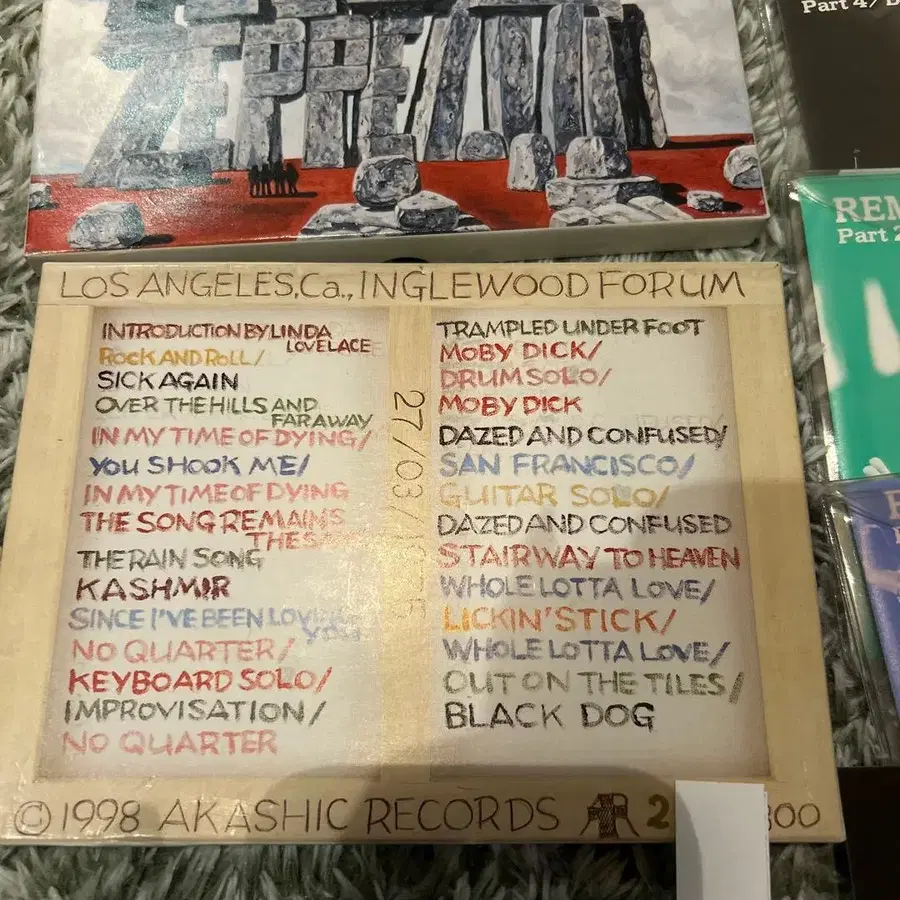 ZEPPELIN
Part 4/
REM
Part 2
LOS ANGELES,Ca., INGLEWOOD FORUM
INTRODUCTION BY LINDA
LOVELACE
ROCK AND ROLL/
SICK AGAIN
OVER THE HILLS AND
FARAWAY
IN MY TIME OF DYING/
YOU SHOOK ME/
IN MY TIME OF DYING
THE SONG REMAINS
THE SAME
THE RAIN SONG
KASHMIR
SINCE I'VE BEEN LOVING
YOU
NO QUARTER/
KEYBOARD SOLO/
IMPROVISATION/
NO QUARTER
27/03/1975
TRAMPLED UNDER FOOT
MOBY DICK/
DRUM SOLO/
MOBY DICK
DAZED AND CONFUSED/
SAN FRANCISCO/
GUITAR SOLO/
DAZED AND CONFUSED
STAIRWAY TO HEAVEN
WHOLE LOTTA LOVE/
LICKIN' STICK/
WHOLE LOTTA LOVE/
OUT ON THE TILES/
BLACK DOG
© 1998 AKASHIC RECORDS AR 2 300